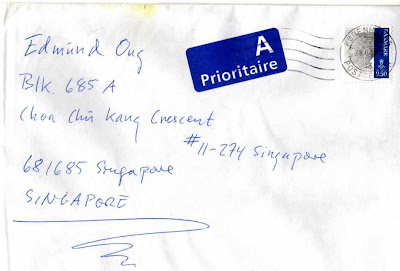 A
Prioritaire
DANMARK
9.50
Edmund Ong
Blk. 685 A
Choa Chu Kang Crescent
#11-274 Singapore
681685 Singapore
SINGAPORE